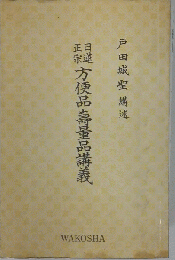 戸田城聖 講述
日蓮正宗
方便品壽量品講義
WAKOSHA